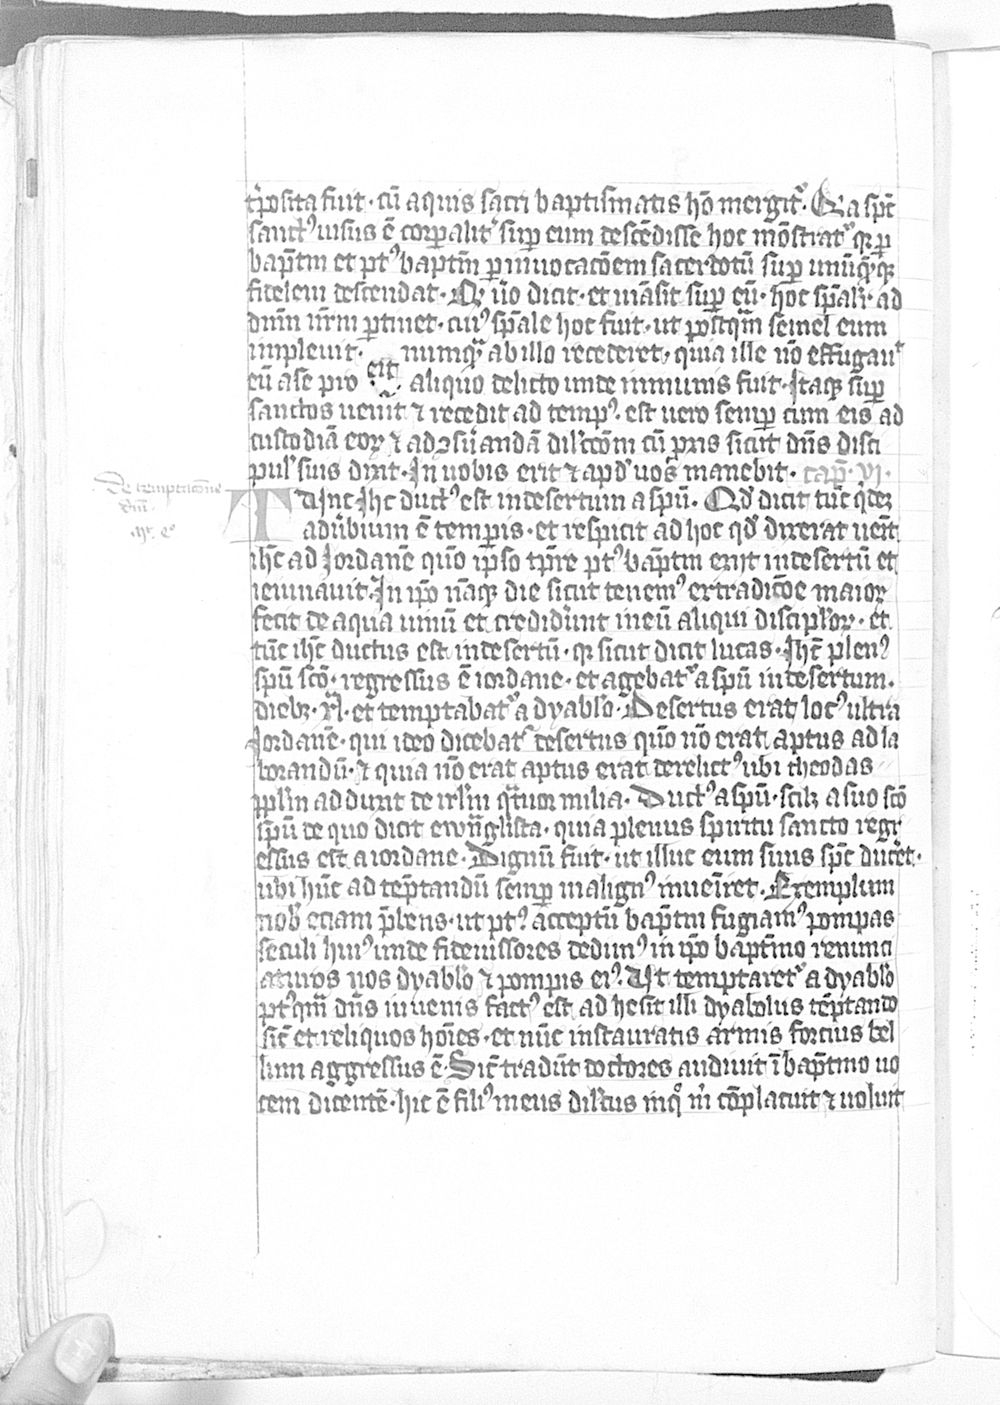 t̾posita fuit · cū aquis sacri baptismatis hō mergit᷑ · Q̾a sp̄c
sanctꝰ uisus ē corꝑalit᷑ suꝑ eum descēdisse hoc mōstrat᷑ qꝛ ꝑ
bap̄tm et p̄tꝰ bapt̄m ꝑ inuocacōem sacerdotū suꝑ unūq̄qꝫ
fidelem descendat · Qꝛ u̾o dicit · et māsit suꝑ eū · hoc sp̄alit᷑ ad
dn̄m nr̄m ꝑtinet · cuiꝰ sp̄ale hoc fuit · ut postqꝫ semel eum
impleuit · numqꝫ ab illo recederet · quia ille nō effugauit
eū a se pro eit aliquo delicto unde inmunis fuit · Itaqꝫ suꝑ
sanctos uenit ⁊ recedit ad tempꝰ · est uero semꝑ cum eis ad
custodiā eoꝝ ⁊ ad ꝯsꝰuandā dilc̄cōm cū pr̄is sicut dn̄s disci
pulꝭ suis dixit · In uobis erit ⁊ apd̾ uos manebit · cap̄ · vi ·
De temptacione
dn̄i ·
TUnc Ihc ductꝰ est in desertum a spū · Qd̾ dicit tūc q̾dē
adūbium ē tempꝑis · et respicit ad hoc qd̾ dixerat uenit
ih̄c ad Jordanē quō ip̄so tp̄re p̄tꝰ bap̄tm exijt in desertū et
ieiunauit · In ip̄o nāqꝫ die sicut tenemꝰ ex tradicōe maioꝝ
fecit de aqua uinū et crediderunt in eū aliqui discipl̄oꝝ · et
tūc ih̄c ductus est in desertū · qꝛ sicut dicit lucas · Ih̄c plenꝰ
spū scō · regressus ē iordane · et agebat᷑ a spū in desertum ·
diebꝫ · xl · et temptabat᷑ a dyabl̄o · Desertus erat locꝰ ultra
Jordanē · qui ideo dicebat᷑ desertus quō nō erat aptus ad la
borandū · ⁊ quia nō erat aptus erat derelictꝰ ubi theodas
ppl̄m adduxit de irl̄m q̾tuor milia · Ductꝰ a spū · scilꝫ a suo scō
spū de quo dicit ewāglista · quia plenus spiritu sancto regr
essus est a iordane · Dignū fuit · ut illuc eum suus sp̄c duc̄et ·
ubi hūc ad tēptandū semꝑ malignꝰ inuen̄iret · Exemplum
nob̾ eciam p̄bens · ut p̄tꝰ acceptū bap̄tm fugiamꝰ pompas
seculi huiꝰ unde fideiussores dedimꝰ in ip̄o baptm̄o renunci
aturos nos dyabl̄o ⁊ pompis eiꝰ · Ut temptaret᷑ a dyabl̄o
p̄tꝰqm̄ dn̄s iuuenis factꝰ est adhesit illi dyabolus tēptando
sic̄ et reliquos hōīes · et nūc instauratis armis forcius bel
lum aggressus ē · Sic̄ tradūt doctores audiuit ī bap̄tmo uo
cem dicentē · hic ē filiꝰ meus dilc̄tus in qͦ m̄ cōplacuit ⁊ uoluit